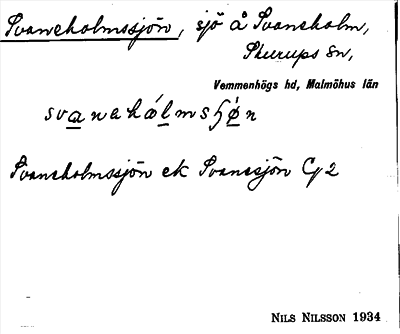 Svaneholmssjön, sjö å Svaneholm,
Skurups sn,
Vemmenhögs hd, Malmöhus län
svanahólmsʃǿn
Svaneholmssjön ek Svanesjön Cy2
NILS NILSSON 1934